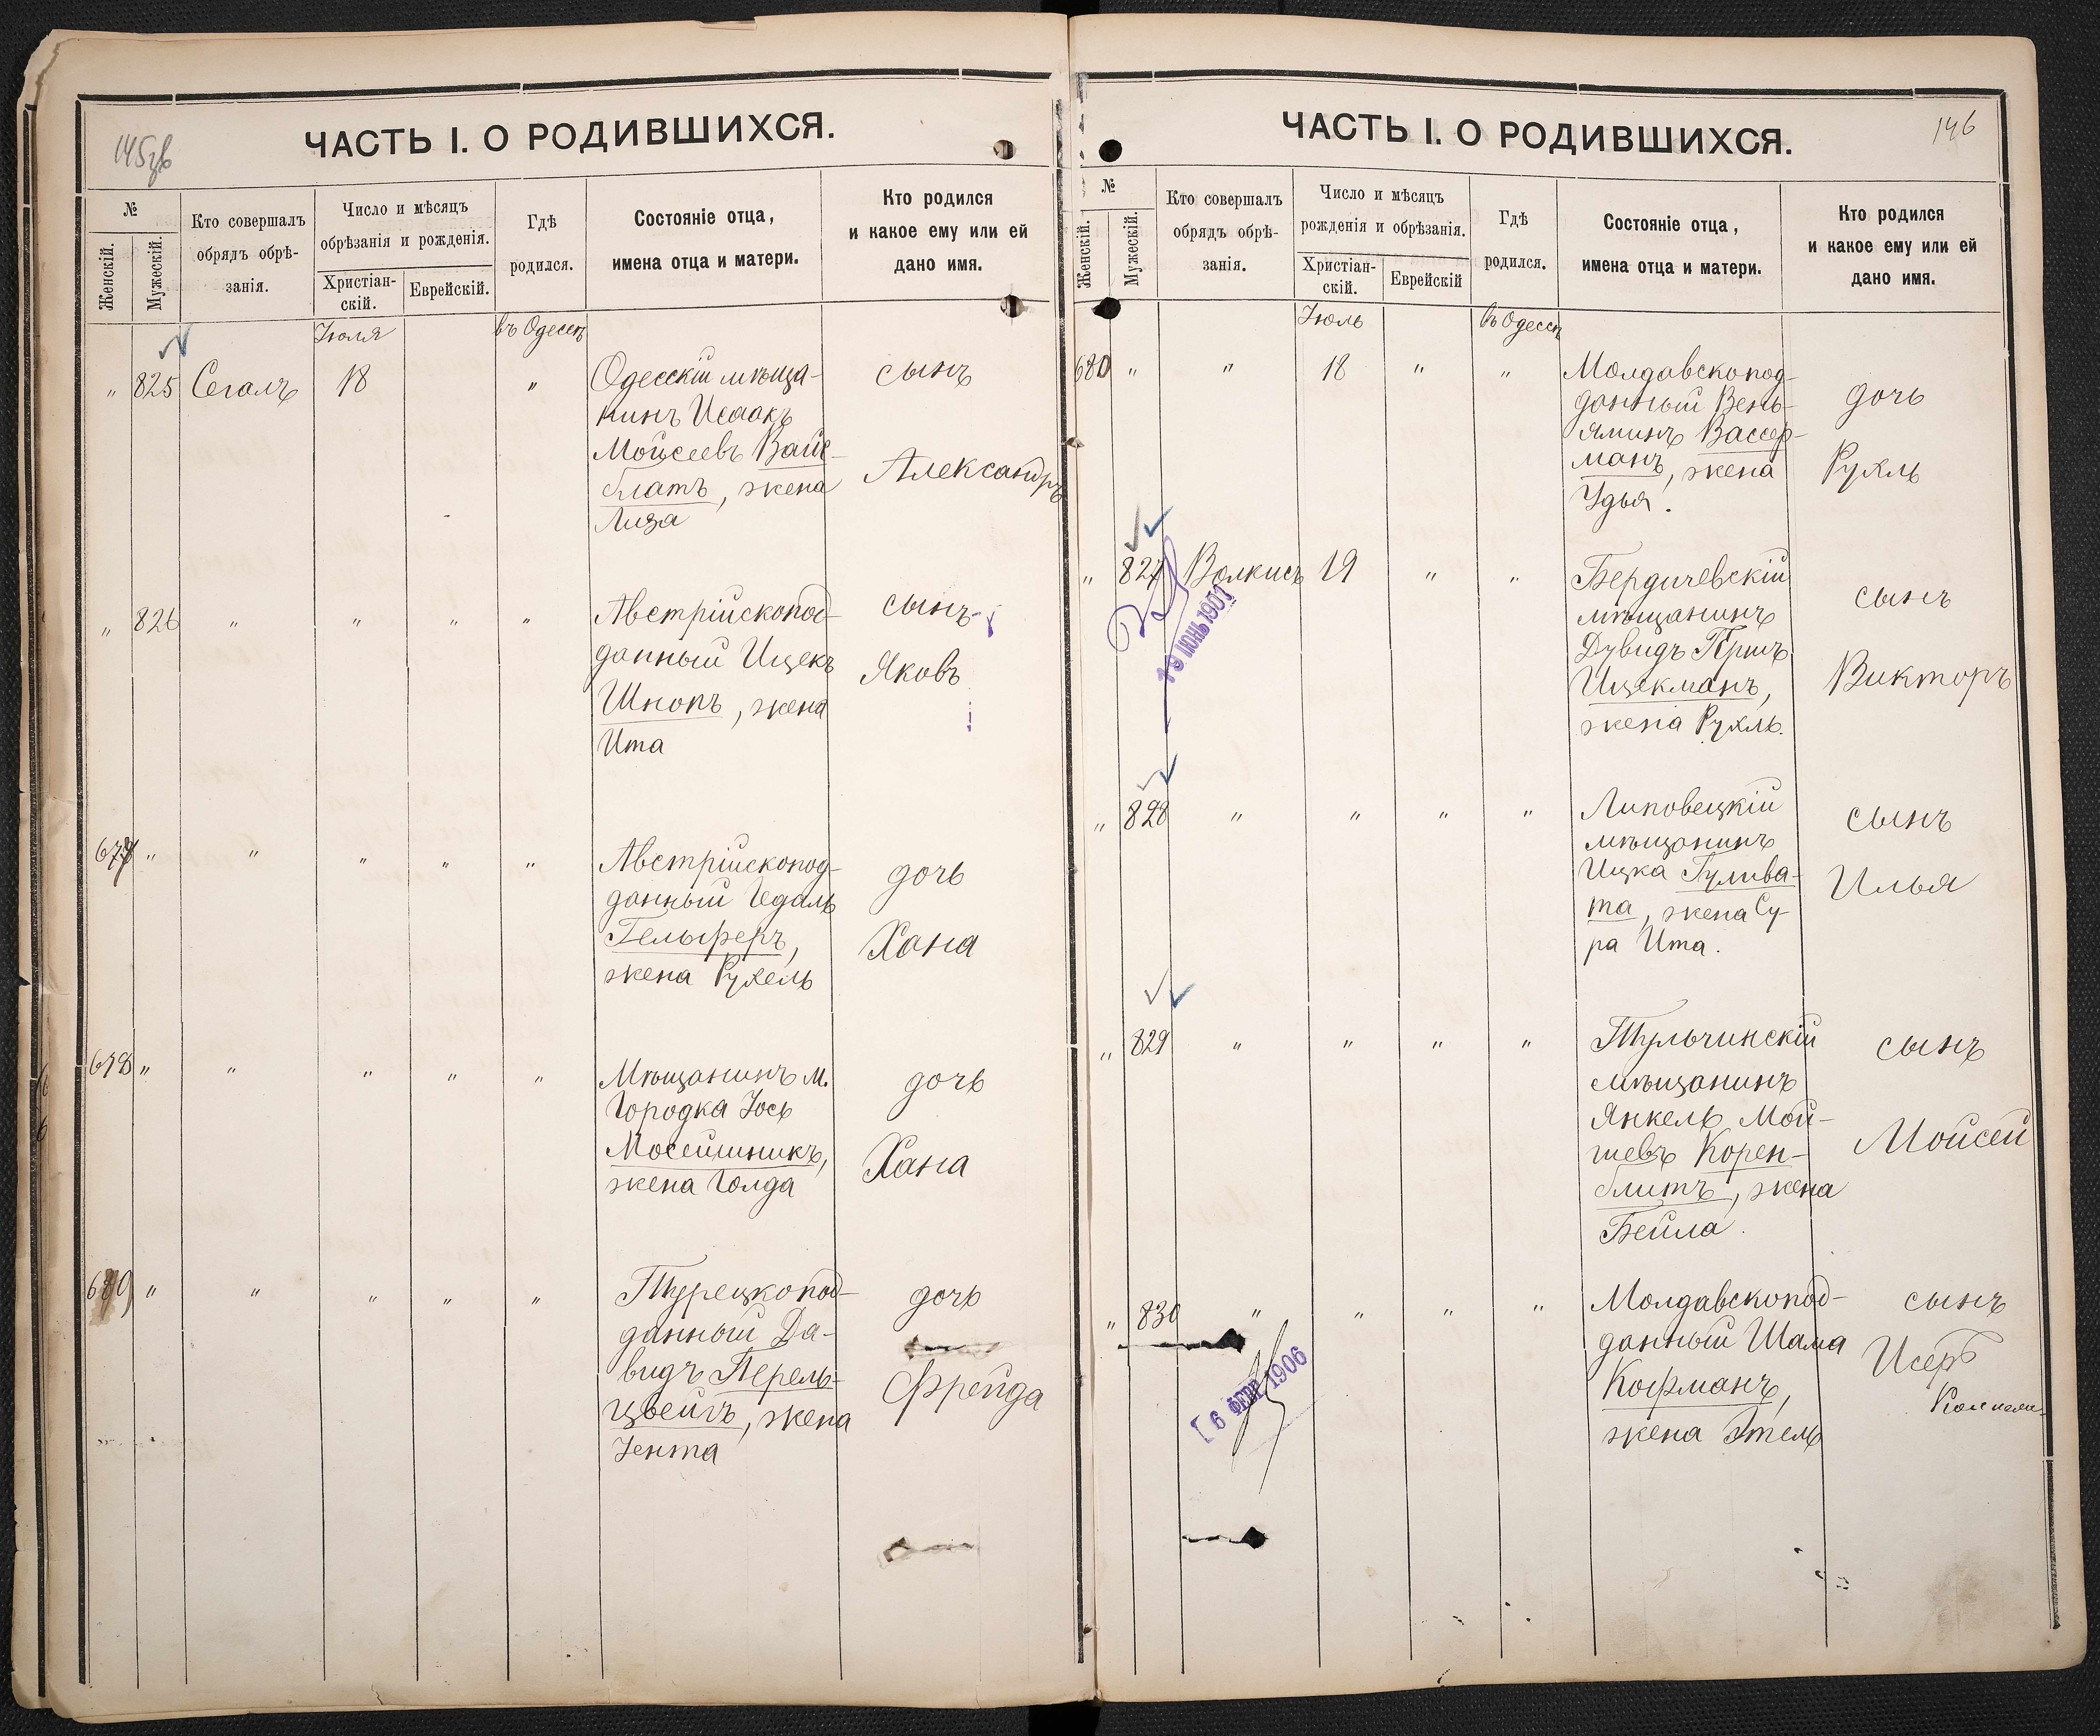 145об
ЧАСТЬ I. О РОДИВШИХСЯ.
№
Женскій.
Мужескій.
Кто совершалъ
обрядъ обрѣ-
занія.
Число и мѣсяцъ
обрѣзанія и рожденія.
Христіан-
скій.
Еврейскій.
Гдѣ
родился.
Состояніе отца,
имена отца и матери.
Кто родился
и какое ему или ей
дано имя.
Іюля
въ Одессѣ
" 825 Сегалъ 18 "
Одесскій мѣща-
нинъ Исаакъ
Мойсеевъ Вайс-
блатъ, жена
Лиза
сынъ
Александръ
" 826 " " " "
Австрійскопод-
данный Ицекъ
Шнопъ, жена
Ита
сынъ
Яковъ
677 " " " " "
Австрійскопод-
данный Гедаль
Гельферъ,
жена Рухель
дочь
Хана
678 " " " " "
Мѣщанинъ м.
Городка Іось
Мосейшникъ,
жена Голда
дочь
Хана
679 " " " " "
Турецкопод-
данный Да-
видъ Перель-
цвейгъ, жена
Іента
дочь
Фрейда
146
ЧАСТЬ I. О РОДИВШИХСЯ.
№
Женскій.
Мужескій.
Кто совершалъ
обрядъ обрѣ-
занія.
Число и мѣсяцъ
рожденія и обрѣзанія.
Христіан-
скій.
Еврейскій
Гдѣ
родился.
Состояніе отца,
имена отца и матери.
Кто родился
и какое ему или ей
дано имя.
Іюль
въ Одессѣ
680 " " 18 " "
Молдавскопод-
данный Вень-
яминъ Вассер-
манъ, жена
Удья.
дочь
Рухль
" 827 Волкисъ 19 " "
19 ІЮНЬ 1901
Бердичевскій
мѣщанинъ
Дувидъ Гершъ
Ицекманъ,
жена Рухль.
сынъ
Викторъ
" 828 " " " "
Липовецкій
мѣщанинъ
Ицка Гулива-
та, жена Су-
ра Ита.
сынъ
Илья
" 829 " " " "
Тульчинскій
мѣщанинъ
Янкель Мой-
шевъ Корен-
блитъ, жена
Бейла.
сынъ
Мойсей
" 830 " " " "
6 ФЕВР 1906
Молдавскопод-
данный Шама
Кофманъ,
жена Этель
сынъ
Исеръ